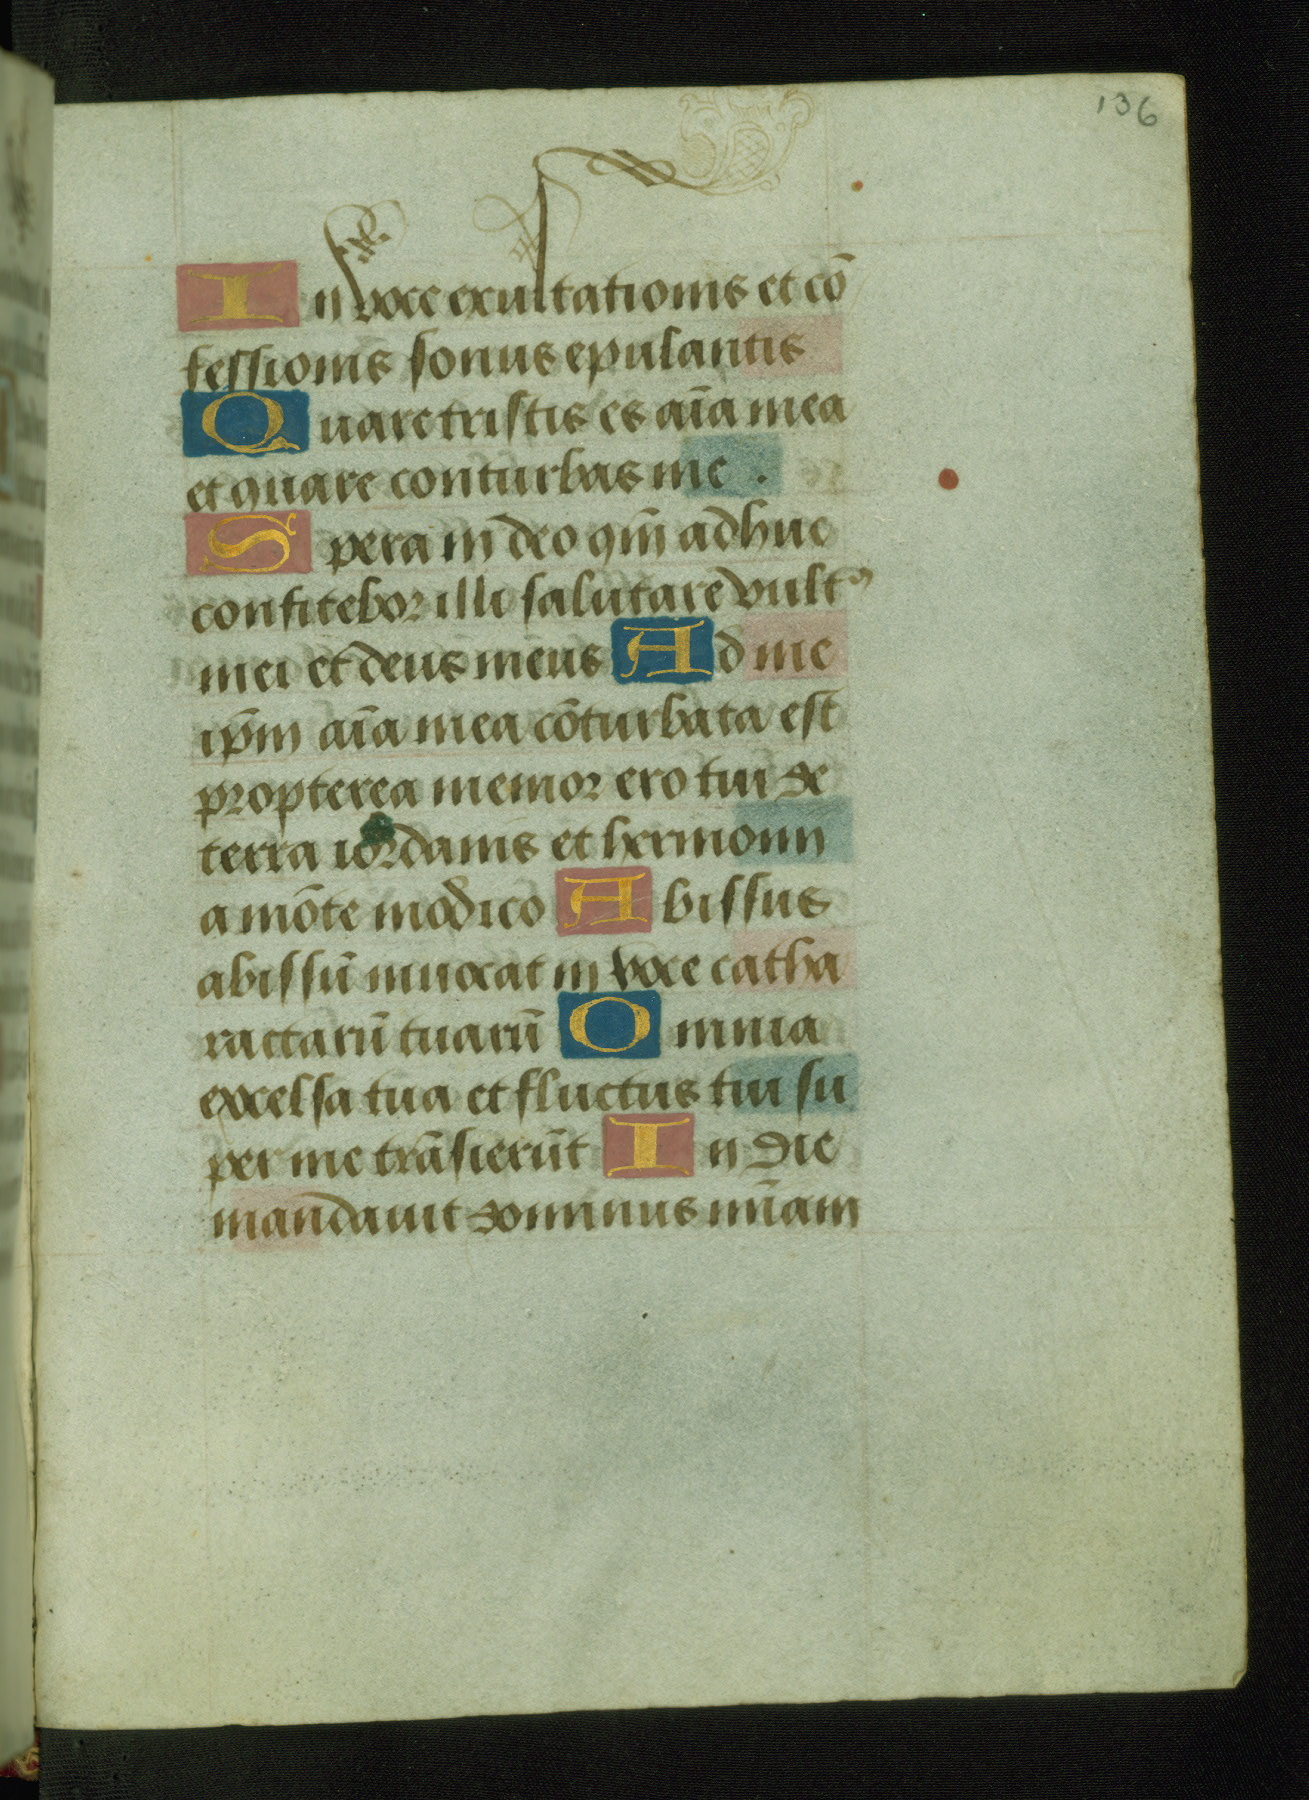 136
In voce exultationis et cō
fessionis sonus epulantis
Quare tristis es aīa mea
et quare conturbas me .
Spera in deo qm̄ adhuc
confitebor illi salutare vultꝰ
mei et deus meus Ad me
ip̄m aīa mea cōturbata est
propterea memor ero tui de
terra iordanis et hermonii
a mōte modico Abissus
abissū inuocat in voce catha
ractarū tuarū Omnia
excelsa tua et fluctus tui su
per me trāsierūt In die
mandauit dominus mīam